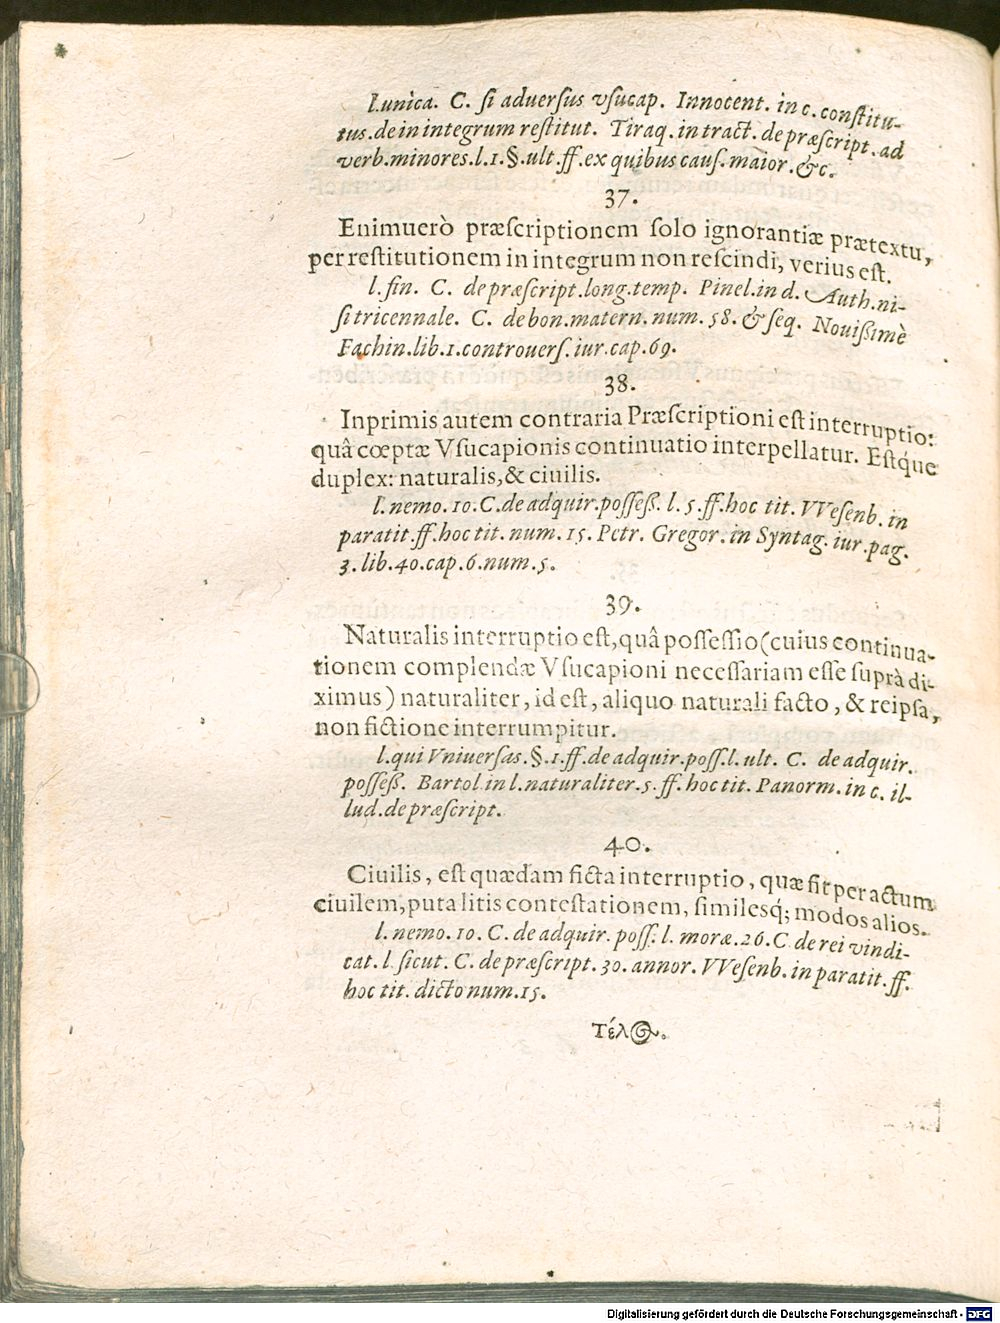 l.unica. C. ſi adverſus vſucap. Innocent. in c. conſtitu-
tus.de in integrum reſtitut. Tiraq. in tract. de præſcript. ad
verb.minores.l.1.§.ult.ff.ex quibus cauſ.maior.&c.
37.
Enimuerò præſcriptionem ſolo ignorantiæ prætextu,
per reſtitutionem in integrum non reſcindi, verius eſt.
l.fin. C. de præſcript.long.temp. Pinel.in d. Auth.ni-
ſi tricennale. C. de bon.matern.num.58.& ſeq. Nouißimè
Fachin.lib.1.controuerſ.iur.cap.69.
38.
Inprimis autem contraria Præſcriptioni eſt interruptio:
quâ cœptæ Vſucapionis continuatio interpellatur. Eſtq́ue
duplex: naturalis,& ciuilis.
l.nemo.10.C.de adquir.poſſeß. l.5.ff.hoc tit. VVeſenb. in
paratit.ff.hoc tit. num.15. Petr. Gregor. in Syntag. iur.pag.
3.lib.40.cap.6.num.5.
39.
Naturalis interruptio eſt,quâ poſſeſſio(cuius continua-
tionem complendæ Vſucapioni neceſſariam eſſe ſuprà di-
ximus) naturaliter, id eſt, aliquo naturali facto, & reipſa,
non fictione interrumpitur.
l.qui Vniuerſas.§.1.ff.de adquir.poſſ.l.ult. C. de adquir.
poſſeß. Bartol in l.naturaliter.5.ff.hoc tit. Panorm.in c. il-
lud.de præſcript.
40.
Ciuilis, eſt quædam ficta interruptio, quæ fit per actum
ciuilem,puta litis conteſtationem, ſimilesq́; modos alios.
l.nemo.10. C. de adquir. poſſ. l. moræ.26.C. de rei vindi-
cat. l. ſicut. C. de præſcript.30.annor. VVeſenb. in paratit.ff.
hoc tit. dicto num.15.
Τέλος.
Digitalisierung gefördert durch die Deutsche Forschungsgemeinschaft - DFG